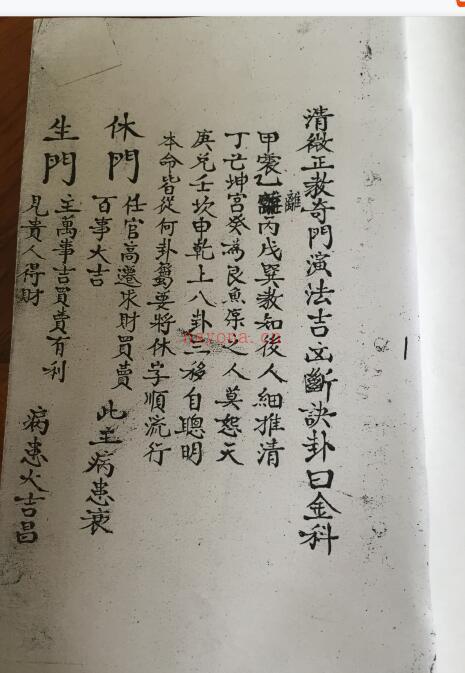 清微正教奇門演法吉凶斷訣卦日金科
離
甲震乙離丙戌巽教知後人細推清
丁亡坤宮癸為艮魚停之人莫怨天
庚兌壬坎申乾上八卦一移自聰明
本命皆從何卦籌要將休字順流行
休門
任官高遷求財買賣
百事大吉
此主病患衰
生門
主萬事吉買賣有利
見貴人得財
病患火吉昌